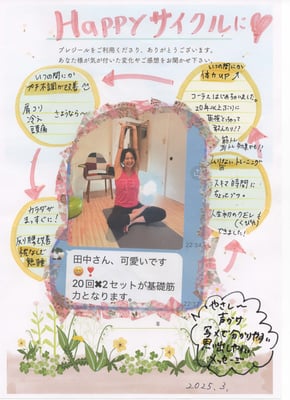 Happyサイクルに♡
プレジールをご利用くださり、ありがとうございます。
あなた様が気が付いた変化やご感想をお聞かせ下さい。
いつの間にか
プチ不調が改善
肩コリ
冷え
頭痛
さようなら〜
いつの間にか
体力UP↑
コーラスはじめちゃいました。
20年以上ぶりに
トレーニング
スキマ時間に
ちょっとずつ
人生初のクビレ
(くびれ)
できました!
カラダが
まっすぐに!
反り腰改善
熟睡
22:34
田中さん、可愛いです
😄❣️
20回✖2セットが基礎筋
力となります。
やさしー
声かけ
写メで分かりやすい
思い出しやすい
メッセージ
2025.3.